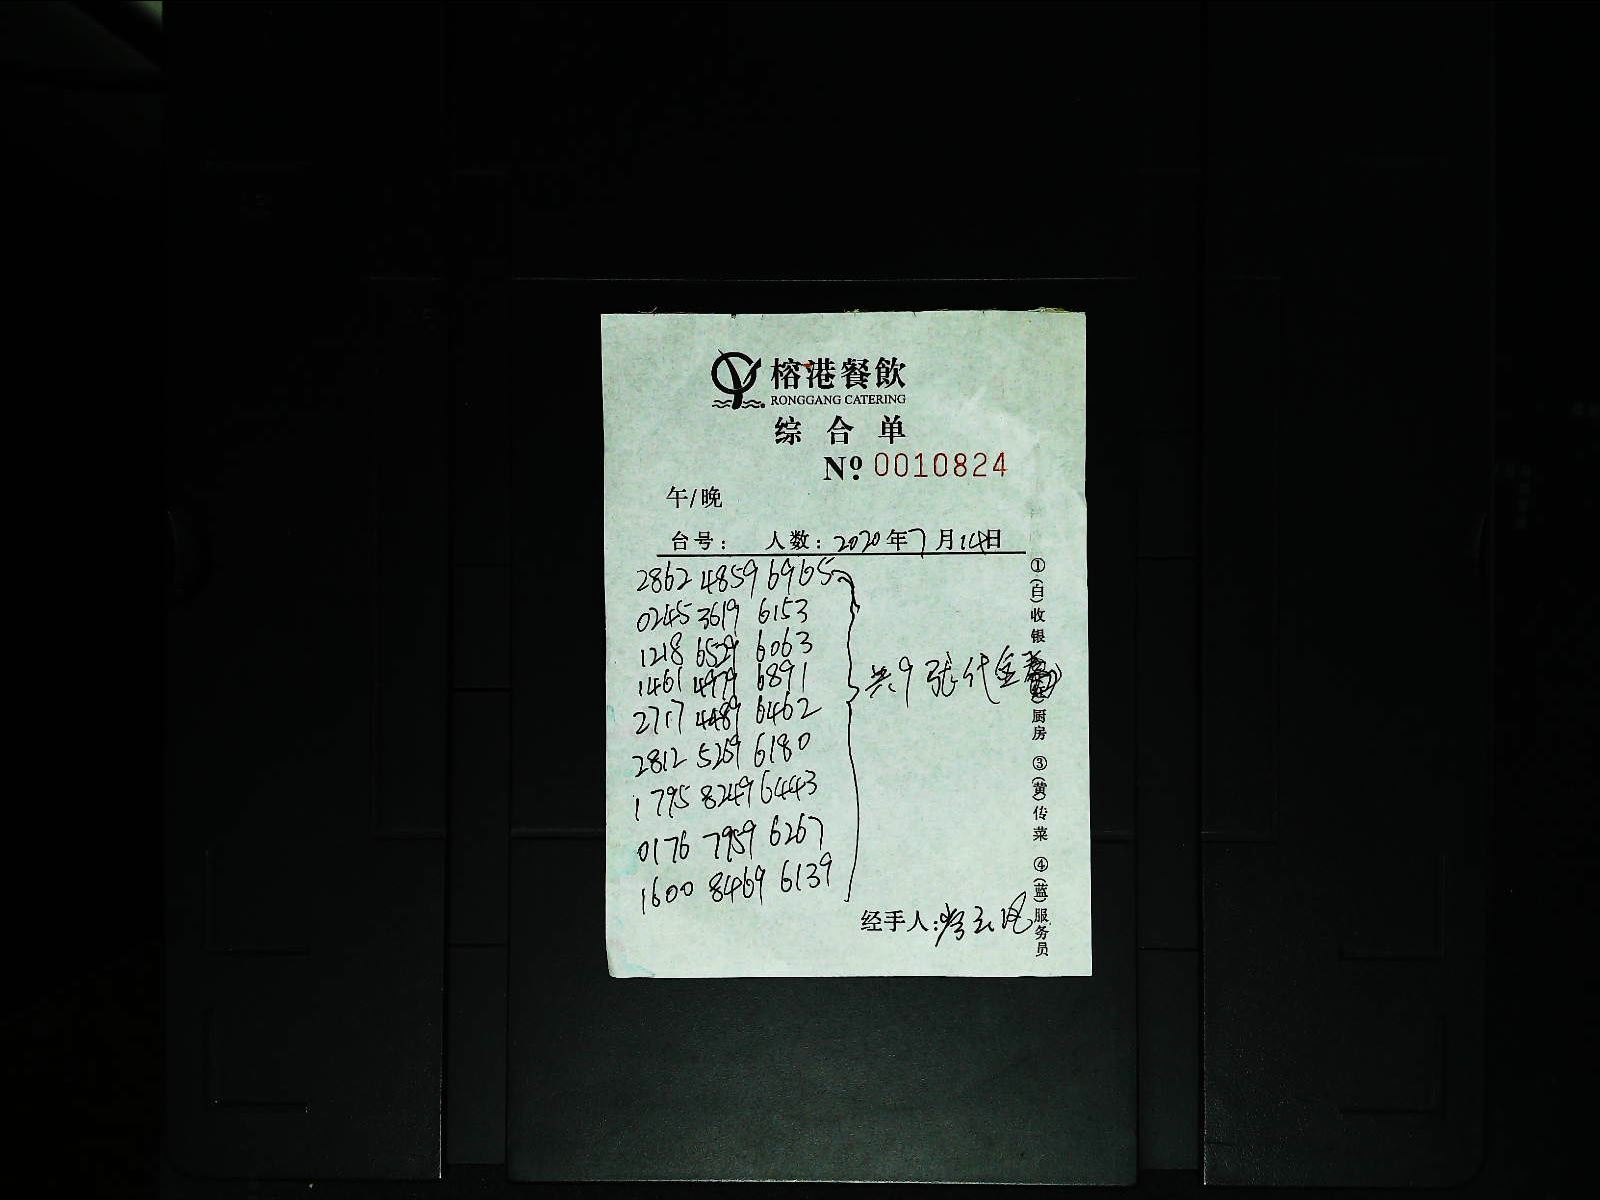 榕港餐飲
RONGGANG CATERING
综合单
Nº 0010824
午/晚
台号： 人数：2020年7月14日
2862 4859 6965
0245 3619 6153
1218 6529 6063
1461 4979 6891
2717 4489 6462
2812 5269 6180
1795 8249 6443
0176 7959 6267
1600 8469 6139
共9张代金
经手人：
①(白)收银 厨房 ③(黄)传菜 ④(蓝)服务员